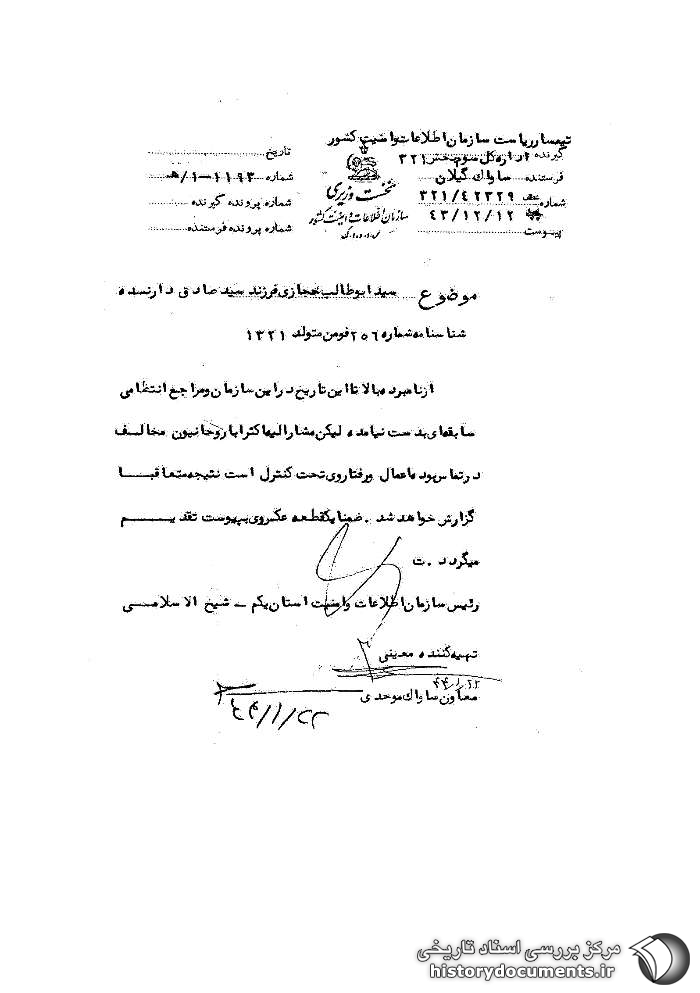 تیمسار ریاست سازمان اطلاعات وامنیت کشور
گیرنده اداره کل سوم بخش ۳۲۱
فرستنده ساواک گیلان
شماره ۳۲۱/۴۲۳۲۹
۴۳/۱۲/۱۲
پیوست
نخست وزیری
سازمان اطلاعات و امنیت کشور
س.ا.و.ا.ک
تاریخ
شماره ۱۱۹۳-۱/هـ
شماره پرونده گیرنده
شماره پرونده فرستنده
موضوع سید ابوطالب حجازی فرزند سید صادق دارنده
شناسنامه شماره ۲۵۶ فومن متولد ۱۳۲۱
ازنامبرده بالا تا این تاریخ در این سازمان ومراجع انتظامی
سابقه‌ای بدست نیامده لیکن مشارالیه اکثرا با روحانیون مخالف
درتماس بوده اعمال ورفتاروی تحت کنترل است نتیجه متعاقبا
گزارش خواهد شد . ضمنا یکقطعه عکس وی بپیوست تقدیم
میگردد .ت
رئیس سازمان اطلاعات وامنیت استان یکم - شیخ الاسلامی
تهیه کننده معینی
معاون ساواک موحدی
۴۴/۱/۲۲
مرکز بررسی اسناد تاریخی
historydocuments.ir